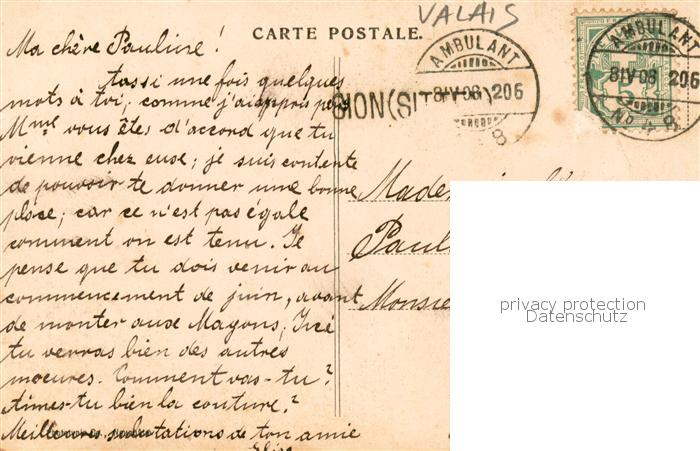 VALAIS
CARTE POSTALE.
AMBULANT
8 IV 08 206
No 8
AMBULANT
8 IV 08 206
SION (SITTEN)
Ma chère Pauline !
tassi une fois quelques
mots à toi; comme j'ai appris par
Mme vous êtes d'accord que tu
vienne chez euse; je suis contente
de pouvoir te donner une bonne
place; car ce n'est pas égale
comment on est tenu. Je
pense que tu dois venir au
commencement de juin, avant
de monter aux Mayons; Ici
tu verras bien des autres
moeures. Comment vas-tu?
Aimes-tu bien la couture?
Meilleures salutations de ton amie
Elise
Made
Paul
Monsie
privacy protection
Datenschutz